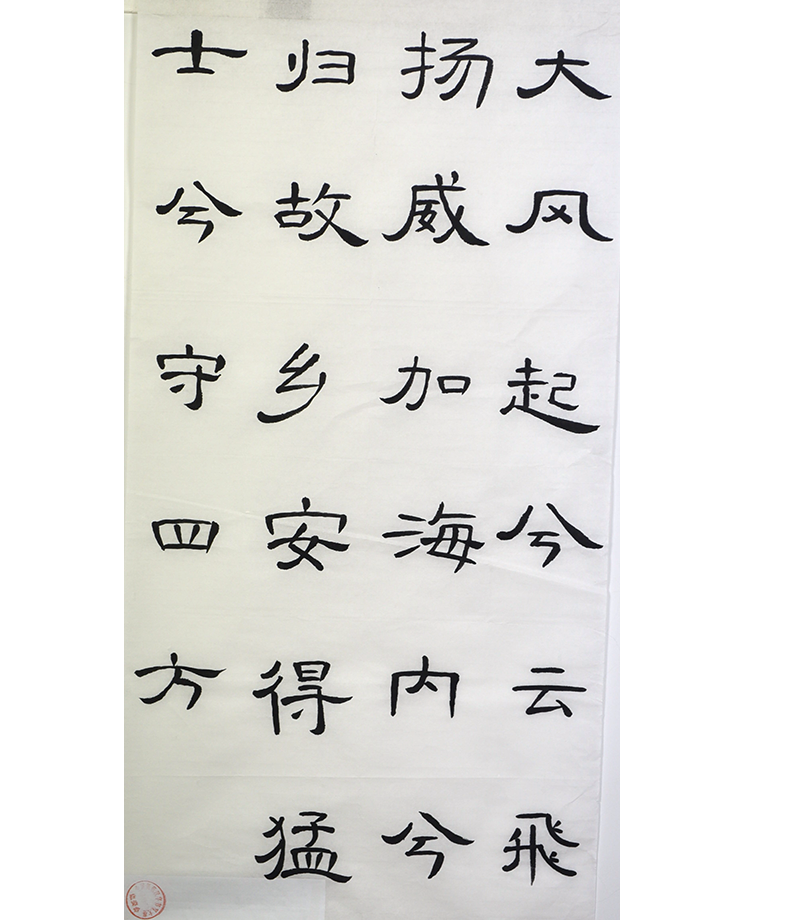 大风起兮云飛
扬威加海内兮
归故乡安得猛
士兮守四方